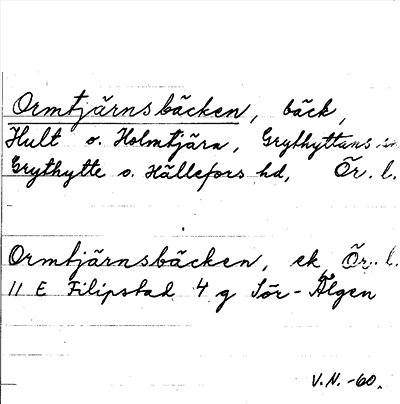 Ormtjärnsbäcken, bäck,
Hult o. Holmtjärn, Grythyttans sn
Grythytte o. Hällefors hd, Ör. l.
Ormtjärnsbäcken, ek Ör. l.
11 E Filipstad 4 g Sör-Älgen
V.N. -60.